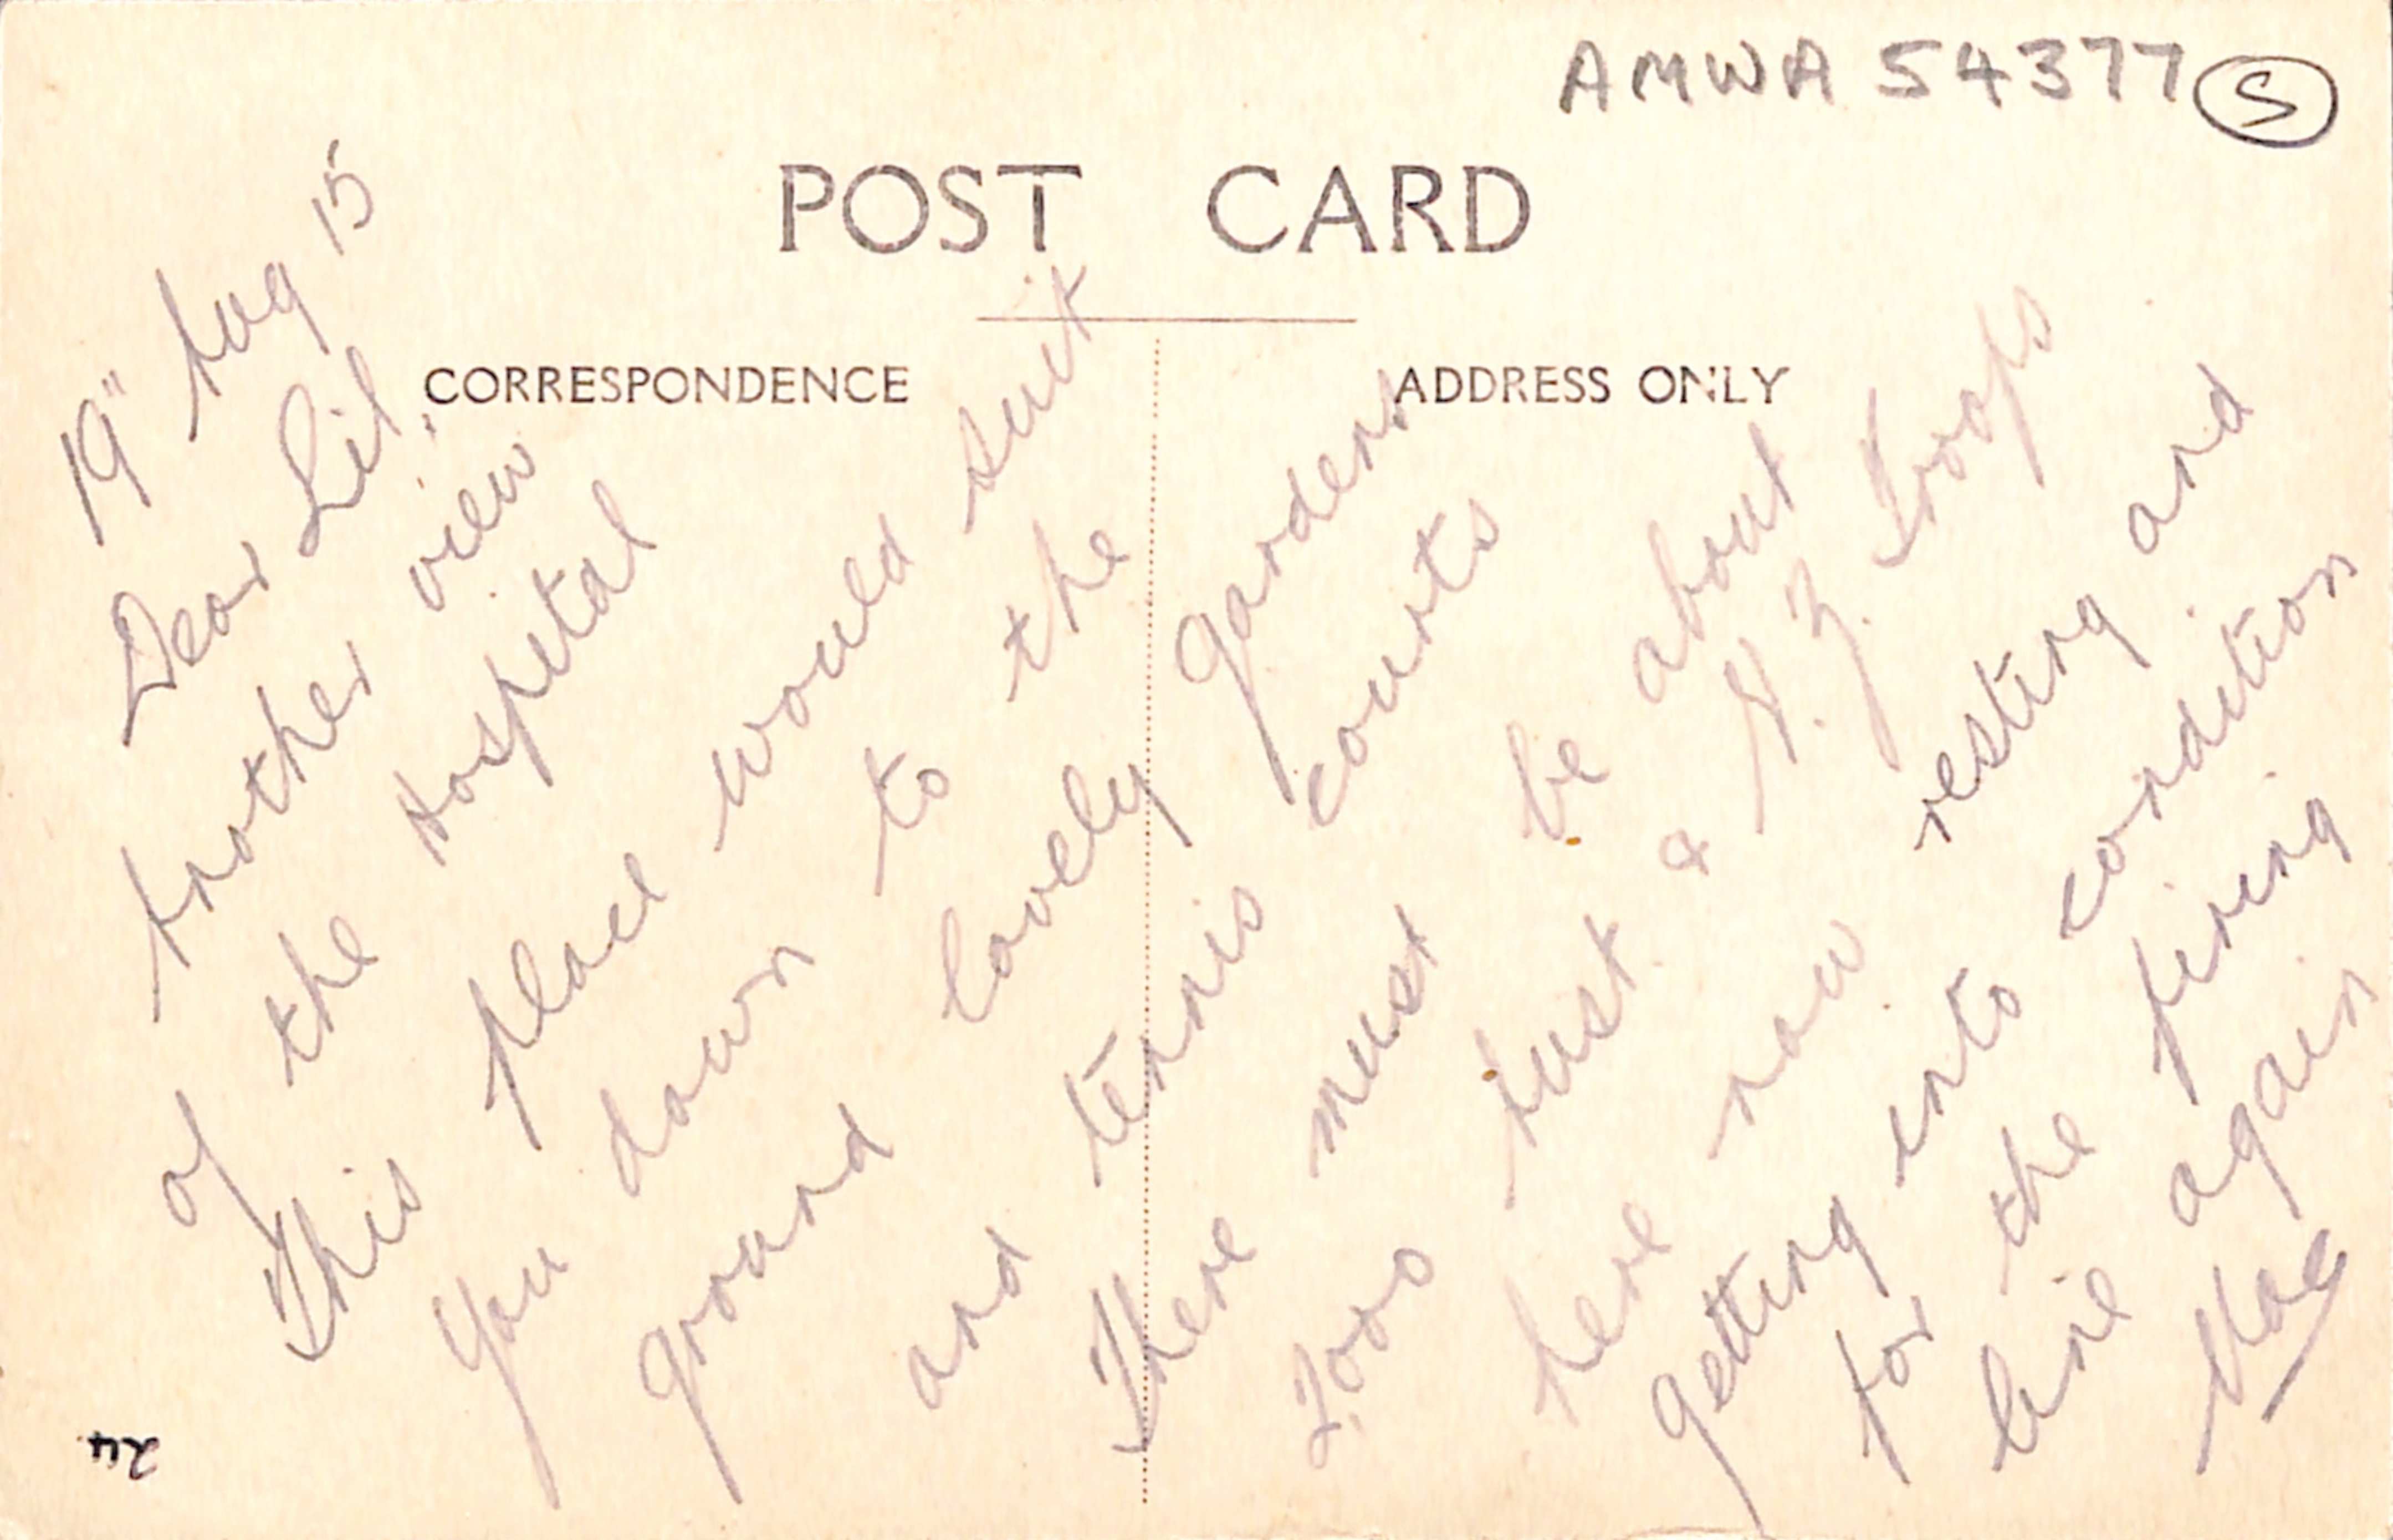 AMWA 54377 S
POST CARD
CORRESPONDENCE
ADDRESS ONLY
19" Aug 15
Dear Lil,
Another view
of the Hospital
This place would suit
you down to the
ground lovely gardens
and tennis courts
There must be about
Aust & N.Z. troops
here now resting and
getting into condition
for the firing
line again
Mac
24